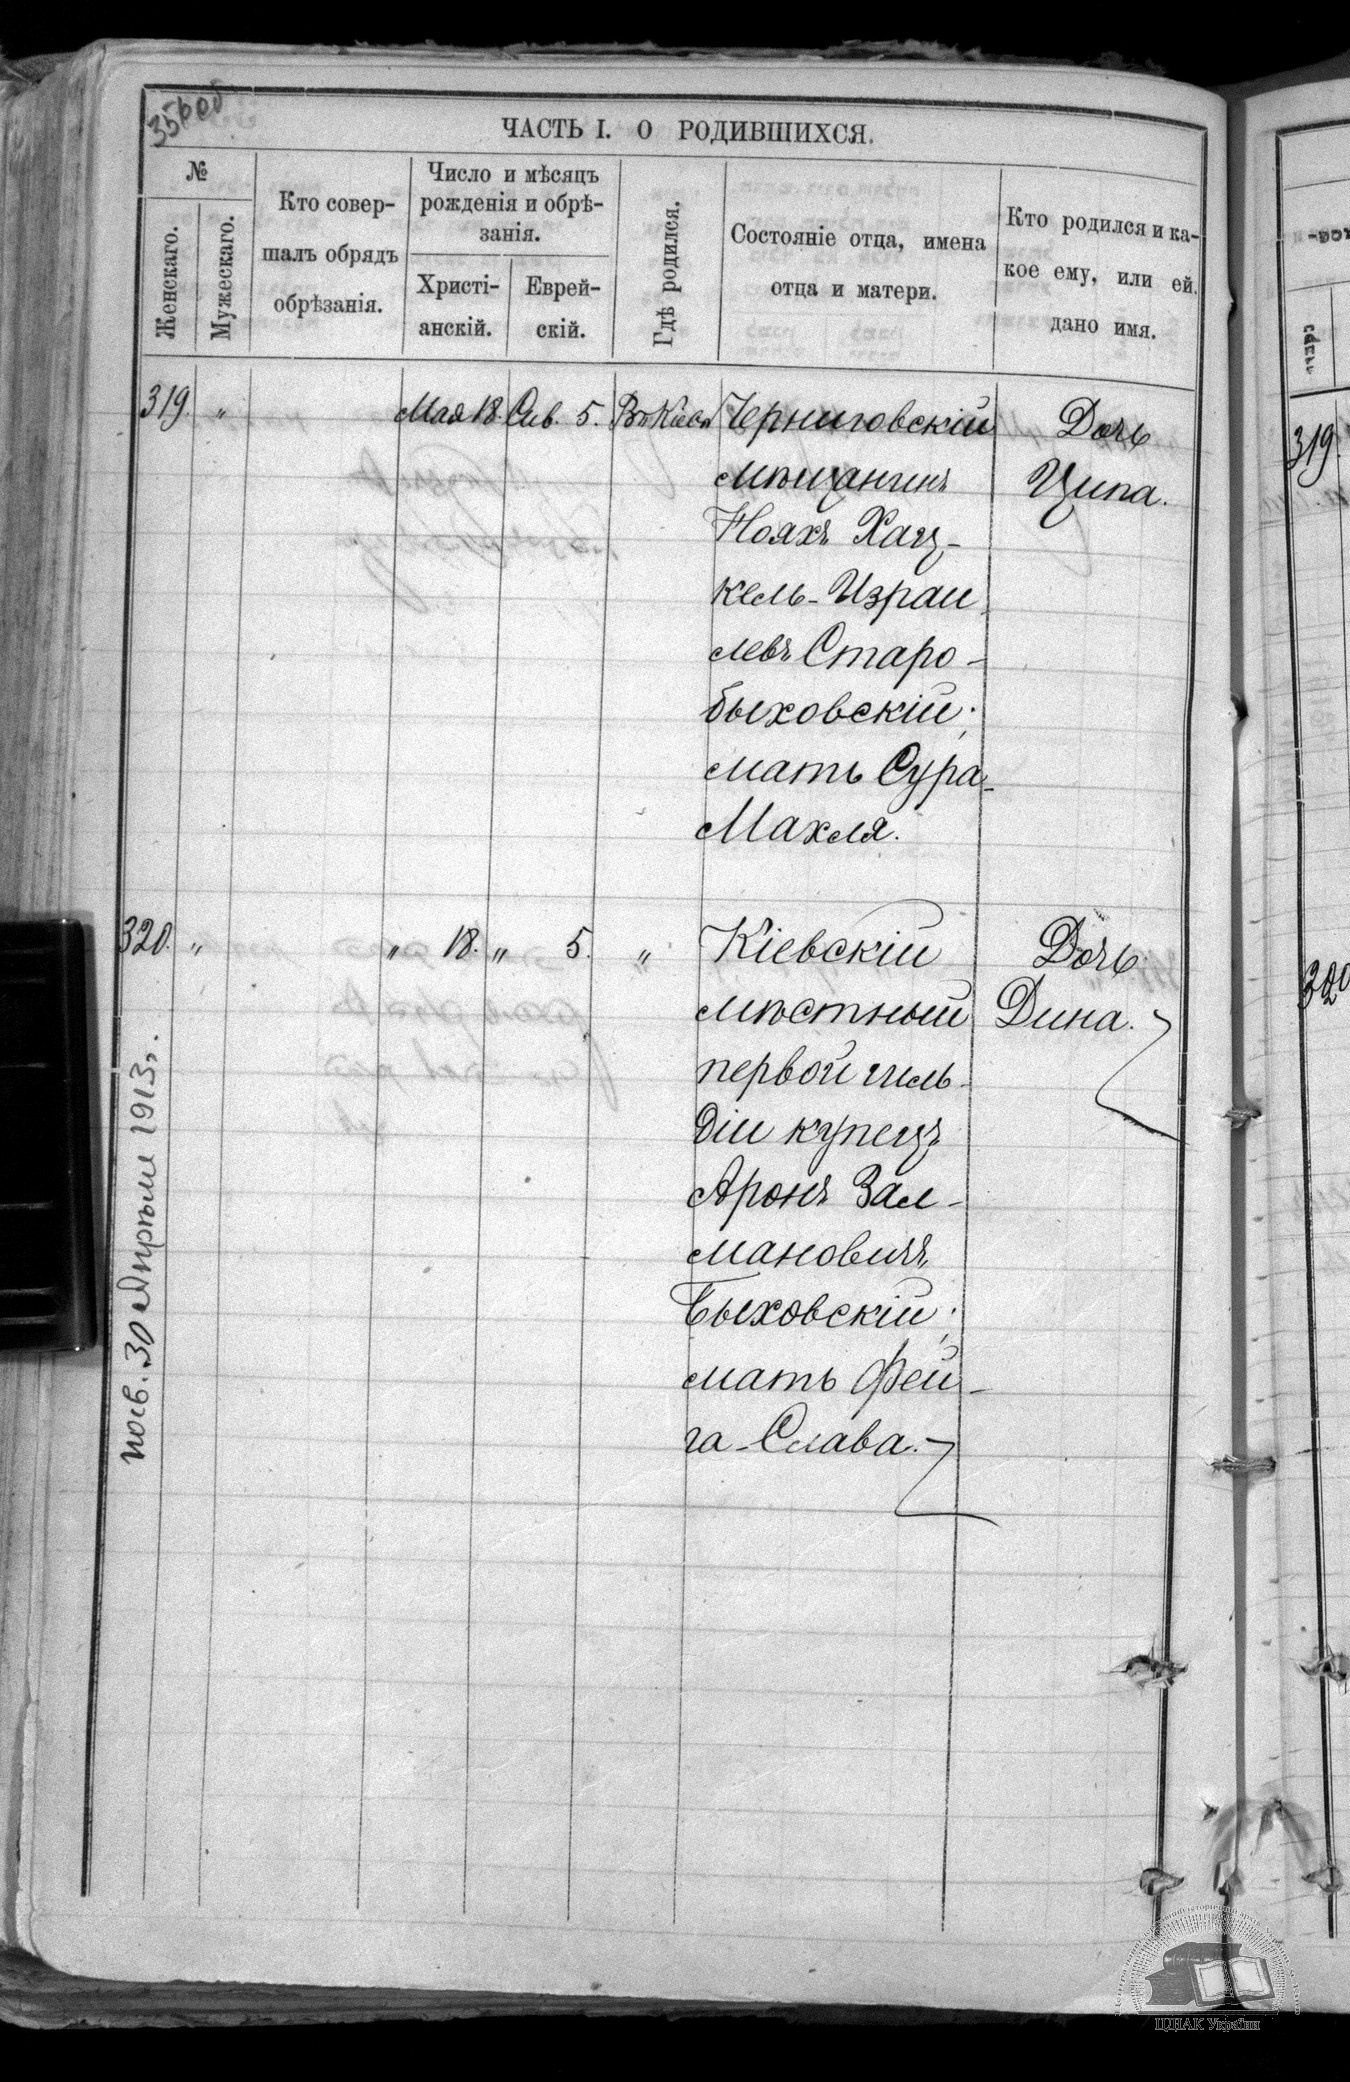 356об
ЧАСТЬ I. О РОДИВШИХСЯ.
№
Женскаго.
Мужескаго.
Кто совер-
шалъ обрядъ
обрѣзанія.
Число и мѣсяцъ
рожденія и обрѣ-
занія.
Христі-
анскій.
Еврей-
скій.
Гдѣ родился.
Состояніе отца, имена
отца и матери.
Кто родился и ка-
кое ему, или ей.
дано имя.
319. „ Мая 18. Сив. 5. Въ Кіевѣ Черниговскій Дочь
мѣщанинъ Ципа.
Ноахъ Хац-
кель-Израи
левъ Старо-
быховскій;
мать Сура-
Махля.
320. „ „ 18. „ 5. „ Кіевскій Дочь
мѣстный Дина.
первой гиль-
діи купецъ
Аронъ Зал-
мановичъ
Быховскій;
мать Фей-
га-Слава.
30 Апрѣля 1913г.
319.
320
ЦДІАК України